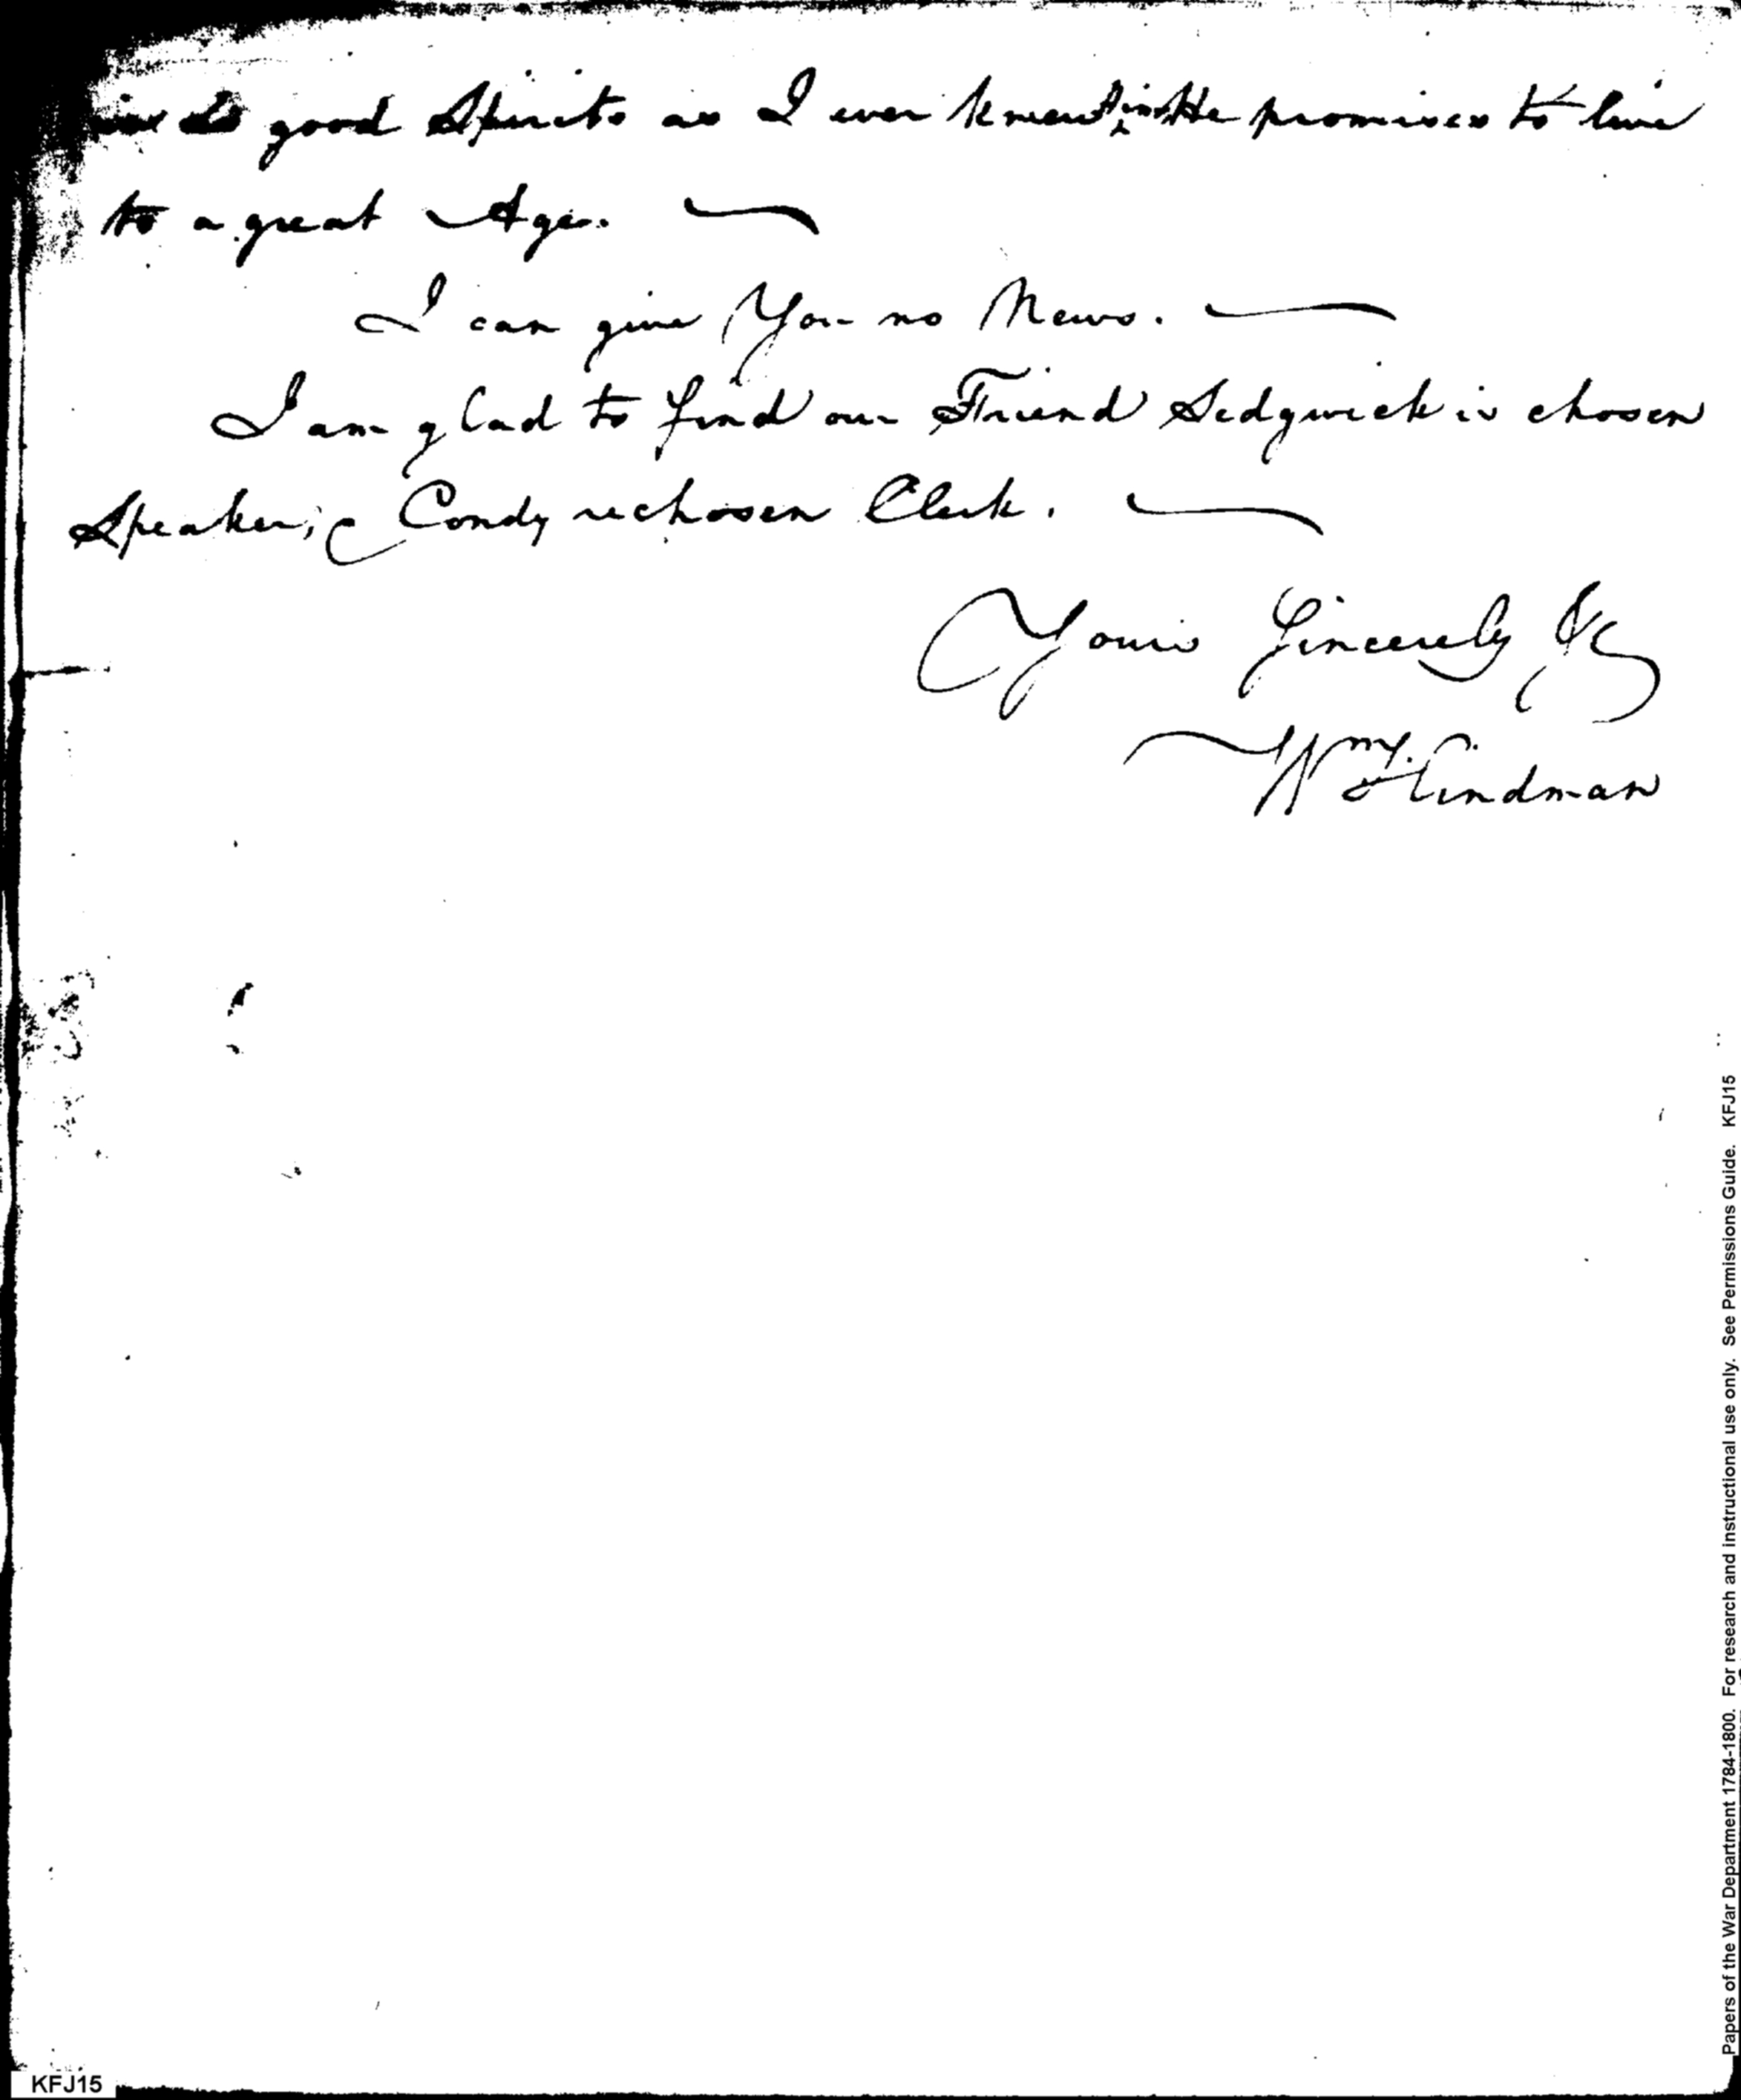 in as good Spirits as I ever knew him. He promises to live
to a great Age. —
I can give You no News. —
I am glad to find our Friend Sedgwick is chosen
Speaker, & Condy rechosen Clerk. —
Yours Sincerely &c
Wm. Hindman
Papers of the War Department 1784-1800. For research and instructional use only. See Permissions Guide. KFJ15
KFJ15